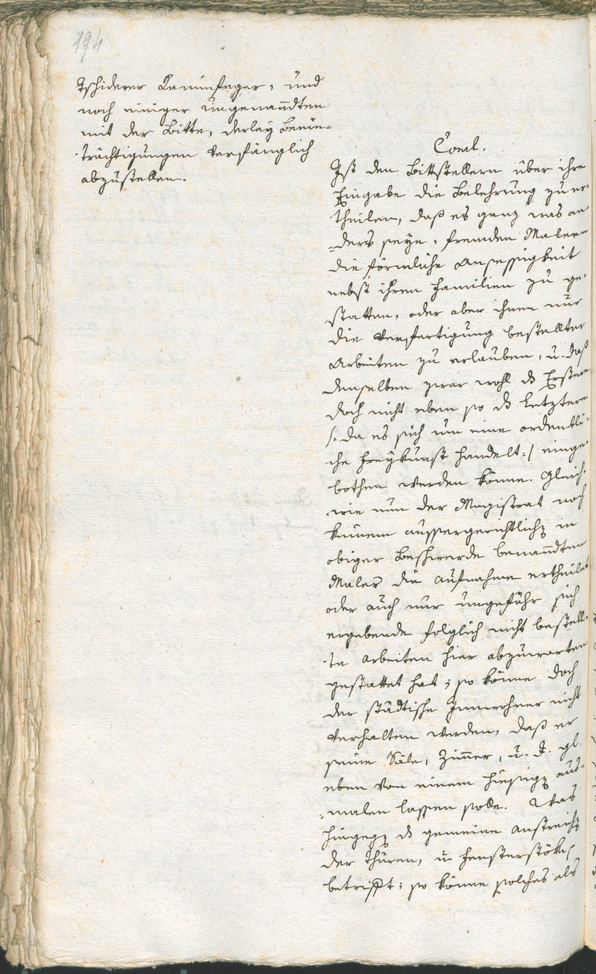 194
Tschiderer Kaminfeger, und
noch einiger ungenannten
mit der Bitte, derley Beein-
trächtigungen verfänglich
abzustellen.
Concl.
Ist den Bittstellern über ihre
Eingabe die Belehrung zu er-
theilen, daß es ganz was an-
ders seye, fremden Malern
die förmliche Ansessigkeit
nebst ihren Familien zu ge-
statten, oder aber ihnen nur
die Verfertigung bestellter
Arbeiten zu erlauben, u. daß
denselben zwar wohl ds Erstere
doch nicht eben so ds Letztere
/: da es sich um eine ordentli-
che Freykunst handelt :/ einge-
bothen werden könne. Gleich-
wie nun der Magistrat noch
keinem aussergerichtlichen in
obiger Beschwerde benannten
Maler die Aufnahme ertheilet
oder auch nur ungefähr sich
ergebende folglich nicht bestell-
te Arbeiten hier abzuwarten
gestattet hat; so könne doch
der städtische Innwohner nicht
verhalten werden, daß er
seine Säle, Zimmer, u. d. gl.
eben von einem hiesigen aus-
malen lassen solle. Was
hingegen ds gemeine Anstreichen
der Thüren, u Fensterstöken
betrifft; so könne solches als